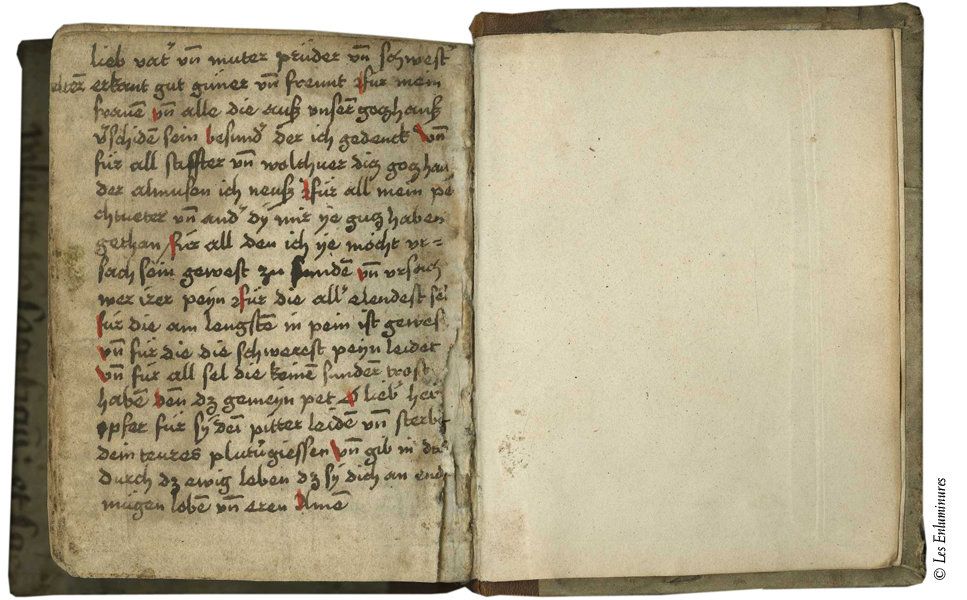 lieb vat' vn̄ muter prüder vn̄ schwest'
erkant gut güner vn̄ freunt für mein
frauē vn̄ alle die auß unser gotzhauß
v'schidē sein besund' der ich gedenck vn̄
für all stiffter vn̄ wolthuer diß gotzhau
der almusen ich neuß für all mein pe
chtueter vn̄ and' dy mir ye gutz haben
gethan für all den ich ye möcht ur=
sach sein gewest zu sundē vn̄ ursach
wer irer peyn für die all' elendest sel
für die am lengstē in pein ist gewes
vn̄ für die die schwerest peyn leidet
vn̄ für all sel die keinē sunder trost
habē den dz gemeyn pet O lieb' her
opfer für sy deī pitter leidē vn̄ sterbē
dein teures plutv'giessen vn̄ gib in
durch dz ewig leben dz sy dich an end
mügen lobē vn̄ eren Amē
© Les Enluminures